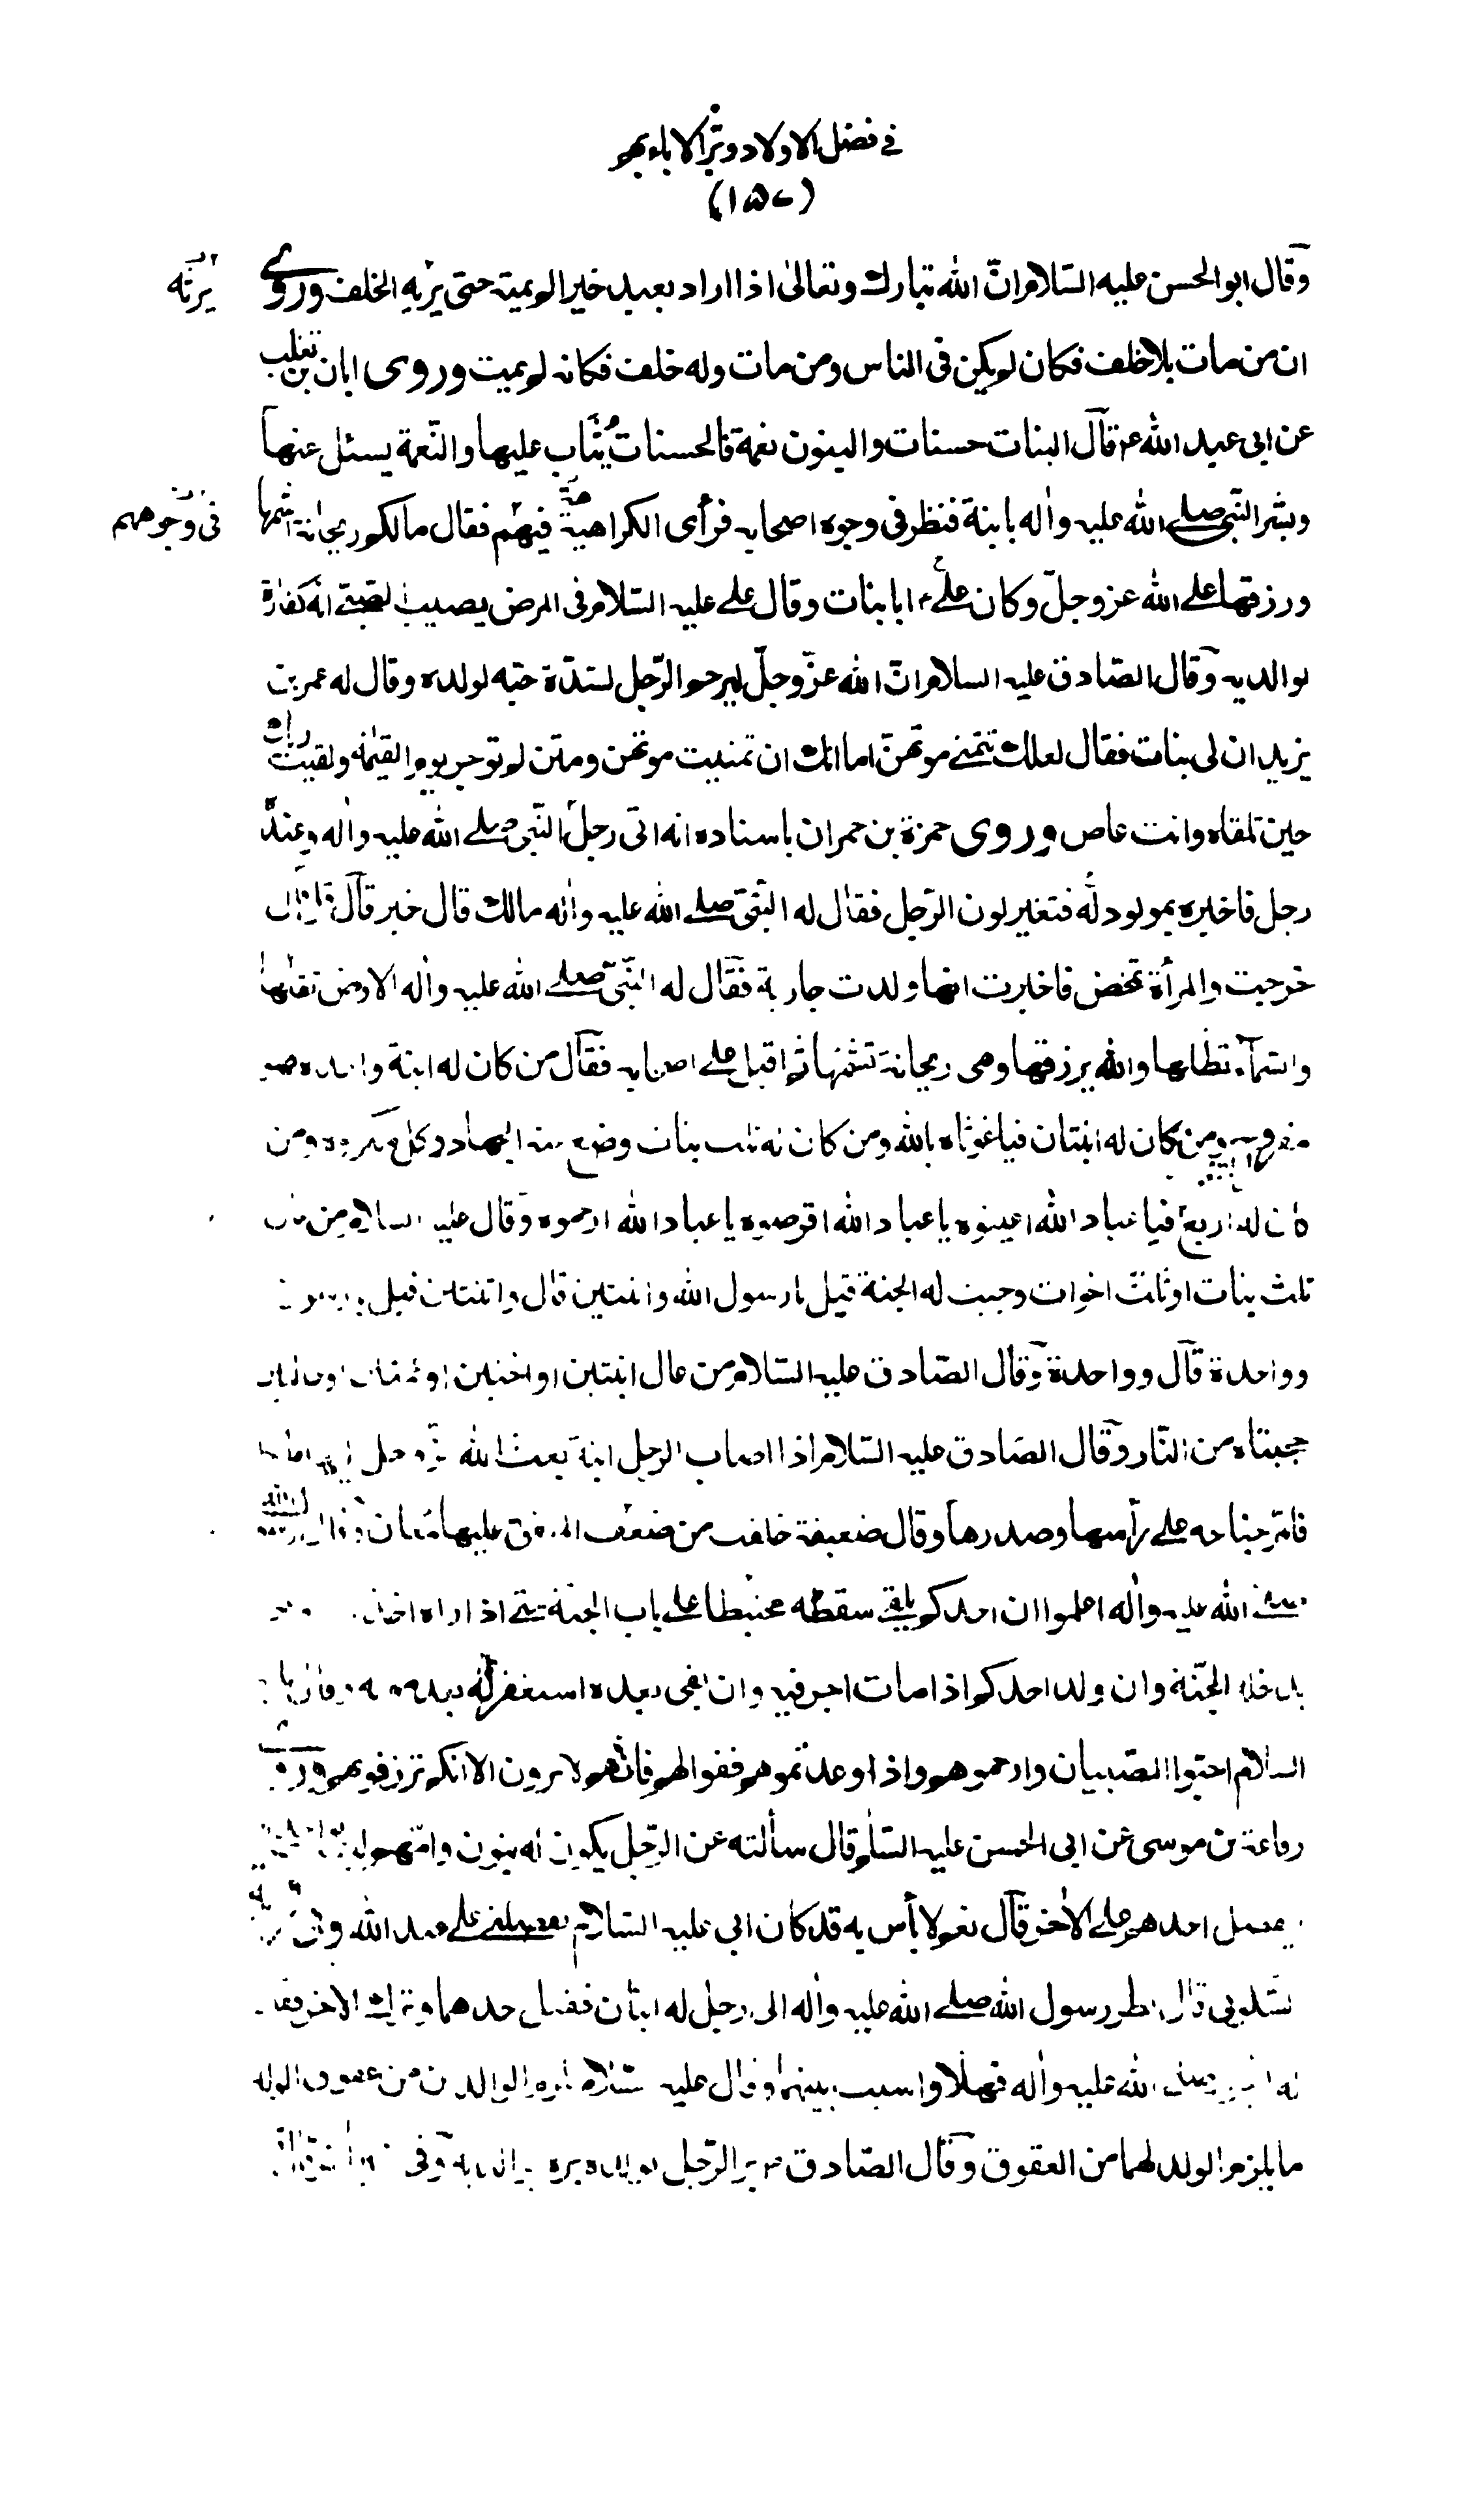 في فضل الاولاد وبر الاباء بهم
(١٥٧)
وقال ابو الحسن عليه السّلام انّ الله تبارك وتعالىٰ اذا اراد بعبد خيرا لم يمته حتى يريه الخلف وروي
يرثه
ان من مات بلا خلف فكان لم يكن في الناس ومن مات وله خلف فكانه لم يمت وروى ابان بن تغلب
عن ابي عبد الله ع قال البنات حسنات والبنون نعمة فالحسنات يُثاب عليها والنّعمة يسئل عنها
وبشر النّبي صلى الله عليه واله بابنة فنظر في وجوه اصحابه فرأى الكراهية فيهم فقال مالكم ريحانة اشمها
في وجوههم
ورزقها على الله عز وجلّ وكان علي ع ابا بنات وقال علي عليه السّلام في المرض يصيب الصّبي انه كفارة
لوالديه وقال الصّادق عليه السلام انّ الله عزّ وجلّ ليرحم الرّجل لشدّة حبّه لولده وقال له عمر بن
يزيد ان لي بنات فقال لعلك تتمنى موتهنّ اما انك ان تمنيت موتهن ومتن لم توجر يوم القيٰمة ولقيت ربك
حين تلقاه وانت عاص وروى حمزة بن حمران باسناده انه اتى رجل النّبي صلى الله عليه واله وعنده
رجل فاخبره بمولود له فتغير لون الرّجل فقال له النّبيّ صلى الله عليه واله مالك قال خير قال قل قال
خرجت والمرأة تمخض فاخبرت انها ولدت جارية فقال له النّبيّ صلى الله عليه واله الارض تقلها
والسّمآء تظلها والله يرزقها وهي ريحانة تشمّها ثم اقبل على اصحابه فقال من كان له ابنة واحدة فهو
ومن كان له ابنتان فيا غوثاه بالله ومن كان له ثلث بنات وضع عنه الجهاد وكل مكروه ومن
كان له اربع فيا عباد الله اعينوه يا عباد الله اقرضوه يا عباد الله ارحموه وقال عليه السلام من عال
ثلث بنات او ثلث اخوات وجبت له الجنة قيل يا رسول الله واثنتين قال واثنتين قيل يا رسول
وواحدة قال وواحدة وقال الصّادق عليه السّلام من عال ابنتين او اختين او عمتين او خالتين
حجبتاه من النّار وقال الصّادق عليه السّلام اذا اصاب الرجل ابنة بعث الله عزّ وجل اليها ملكا
فامرّ جناحه على رأسها وصدرها وقال ضعيفة خلقت من ضعف المنفق عليها معان وقال رسول الله
صلى الله عليه واله اعلموا ان احدكم يلقى سقطه محبنطا على باب الجنّة حتى اذا راه اخذ
يدخله الجنّة وان ولد احدكم اذا مات اجر فيه وان بقي بعده استغفر له بعد موته وقال عليه
السلام احبّوا الصّبيان وارحموهم واذا وعدتموهم ففوا لهم فانّهم لا يرون الا انكم ترزقونهم وروى
رفاعة بن موسى عن ابي الحسن عليه السّلم قال سألته عن الرّجل يكون له بنون وامّهم
يفضل احدهم على الاخر قال نعم لا بأس به قد كان ابي عليه السّلام يفضلني على عبد الله وفي
السّكوني قال نظر رسول الله صلى الله عليه واله الى رجل له ابنان فقبل احدهما وترك الاخر فقال
له النبي صلى الله عليه واله فهلّا واسيت بينهما وقال عليه السّلام يلزم الوالدين من عقوق الولد
ما يلزم الولد لهما من العقوق وقال الصّادق ع بر الرّجل بولده بره بوالديه وفي